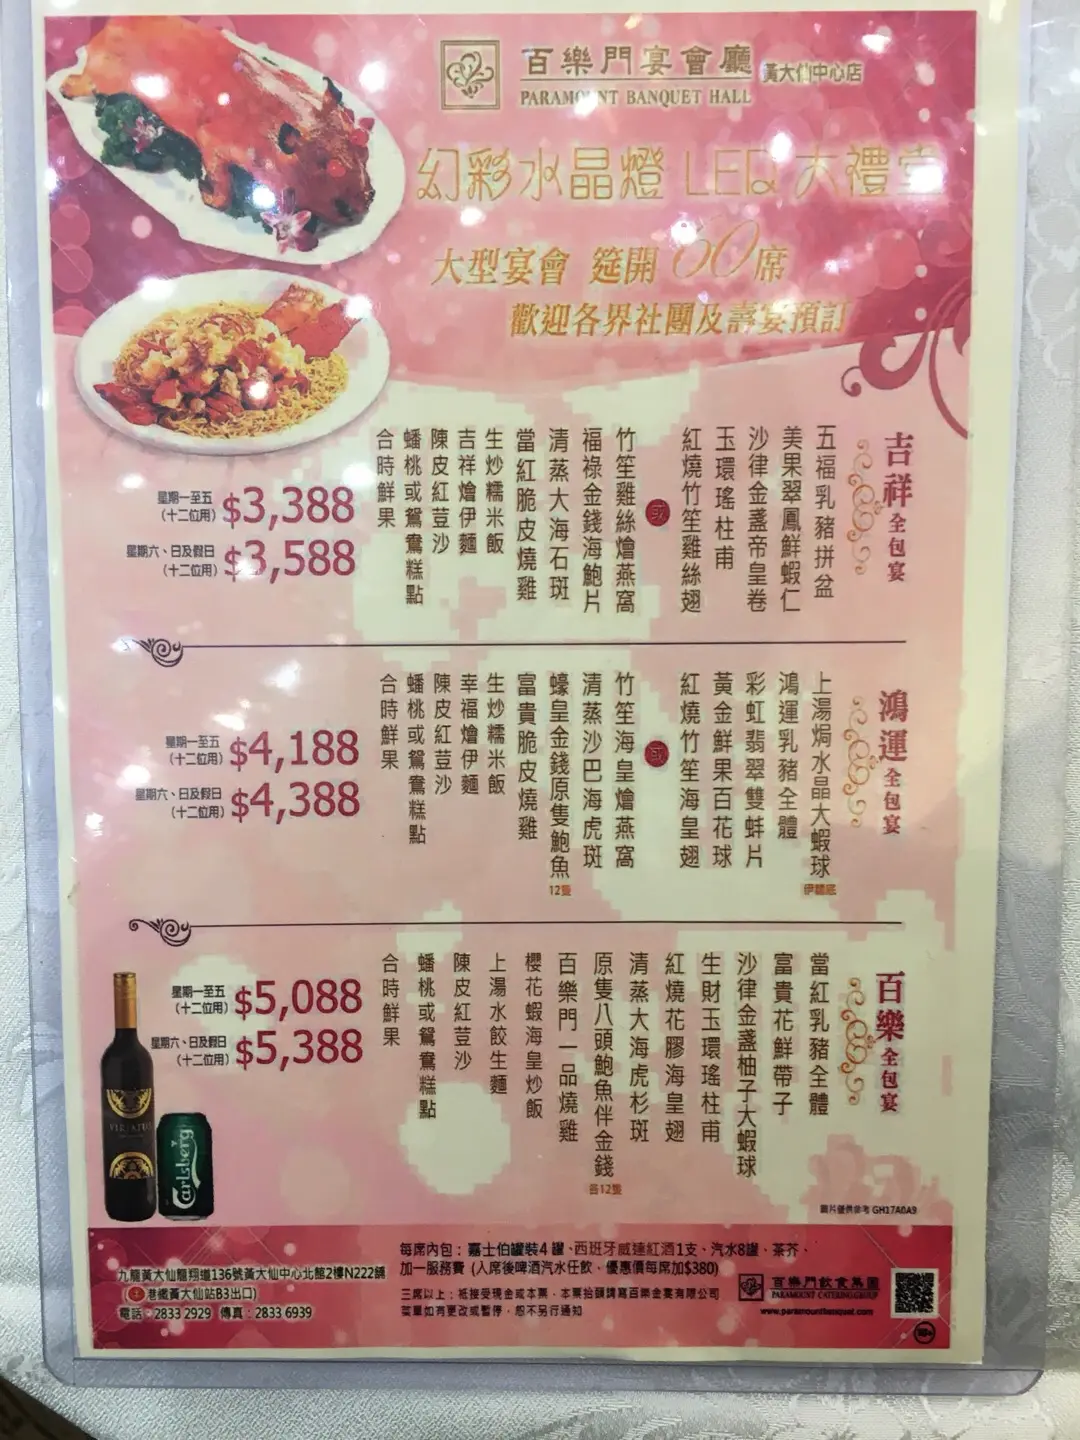 百樂門宴會廳 黃大仙中心店
PARAMOUNT BANQUET HALL
幻彩水晶燈 LED 大禮堂
大型宴會 筵開60席
歡迎各界社團及壽宴預訂
吉祥全包宴
五福乳豬拼盆
美果翠鳳鮮蝦仁
沙律金盞帝皇卷
玉環瑤柱甫
紅燒竹笙雞絲翅
或
竹笙雞絲燴燕窩
福祿金錢海鮑片
清蒸大海石斑
當紅脆皮燒雞
生炒糯米飯
吉祥燴伊麵
陳皮紅荳沙
蟠桃或鴛鴦糕點
合時鮮果
星期一至五
(十二位用) $3,388
星期六、日及假日
(十二位用) $3,588
鴻運全包宴
上湯焗水晶大蝦球
伊麵底
鴻運乳豬全體
彩虹翡翠雙蚌片
黃金鮮果百花球
紅燒竹笙海皇翅
或
竹笙海皇燴燕窩
清蒸沙巴海虎斑
蠔皇金錢原隻鮑魚
12隻
富貴脆皮燒雞
生炒糯米飯
幸福燴伊麵
陳皮紅荳沙
蟠桃或鴛鴦糕點
合時鮮果
星期一至五
(十二位用) $4,188
星期六、日及假日
(十二位用) $4,388
百樂全包宴
當紅乳豬全體
富貴花鮮帶子
沙律金盞柚子大蝦球
生財玉環瑤柱甫
紅燒花膠海皇翅
清蒸大海虎杉斑
原隻八頭鮑魚伴金錢
各12隻
百樂門一品燒雞
櫻花蝦海皇炒飯
上湯水餃生麵
陳皮紅荳沙
蟠桃或鴛鴦糕點
合時鮮果
星期一至五
(十二位用) $5,088
星期六、日及假日
(十二位用) $5,388
VIRIATUS
Carlsberg
圖片僅供參考 GH17A0A9
每席內包：嘉士伯罐裝4罐、西班牙威達紅酒1支、汽水8罐、茶芥、
加一服務費 (入席後啤酒汽水任飲，優惠價每席加$380)
三席以上：祗接受現金或本票，本票抬頭請寫百樂金宴有限公司
菜單如有更改或暫停，恕不另行通知
九龍黃大仙龍翔道136號黃大仙中心北館2樓N222舖
(港鐵黃大仙站B3出口)
電話：2833 2929 傳真：2833 6939
百樂門飲食集團
PARAMOUNT CATERING GROUP
www.paramountbanquet.com
18+